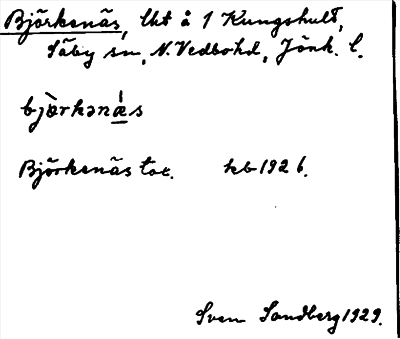 Björkenäs, lht å 1 Kungshult,
Säby sn, N. Vedbohd, Jönk. l.
bjœ̀rkənǽ̲s
Björkenäs tor. kb 1926.
Sven Sandberg 1929.